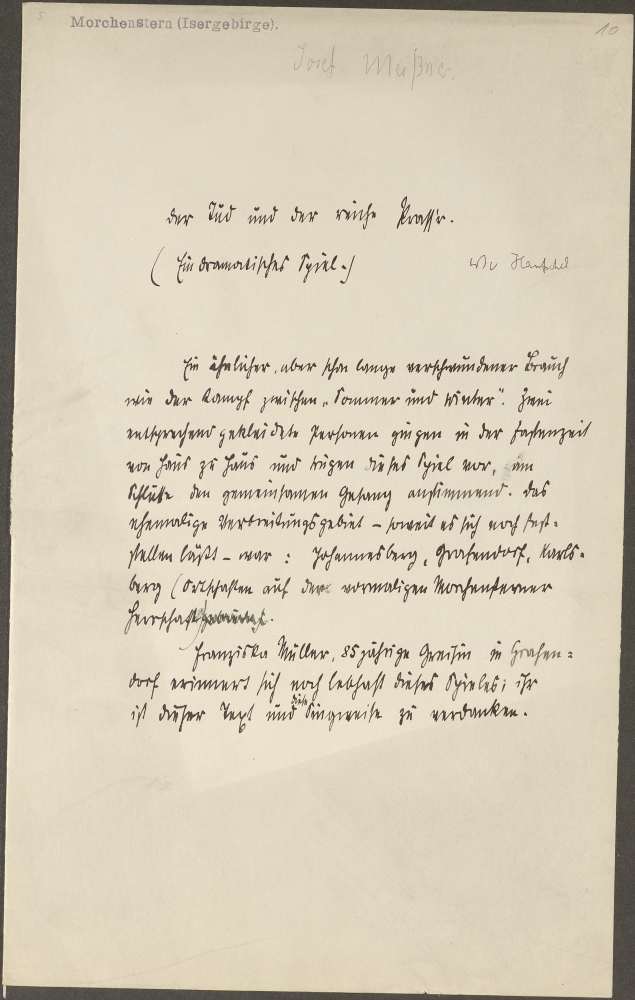 5
Morchenstern (Isergebirge).
10
Josef Meißner.
der Tud und der reiche Prasser.
(Ein dramatisches Spiel.)
Ein ähnlicher, aber schon lange verschwundener Brauch
wie der Kampf zwischen „Sommer und Winter“. Zwei
entsprechend gekleidete Personen gingen in der Fastenzeit
von Haus zu Haus und trugen dieses Spiel vor, am
Schlusse den gemeinsamen Gesang anstimmend. Das
ehemalige Verbreitungsgebiet – soweit es sich noch fest-
stellen läßt – war: Johannesberg, Grafendorf, Karls-
berg (Ortschaften auf der vormaligen Morchensterner
Herrschaft).
Franziska Müller, 85 jährige Greisin in Grafen=
dorf erinnert sich noch lebhaft dieses Spieles; ihr
ist dieser Text und diese Singweise zu verdanken.